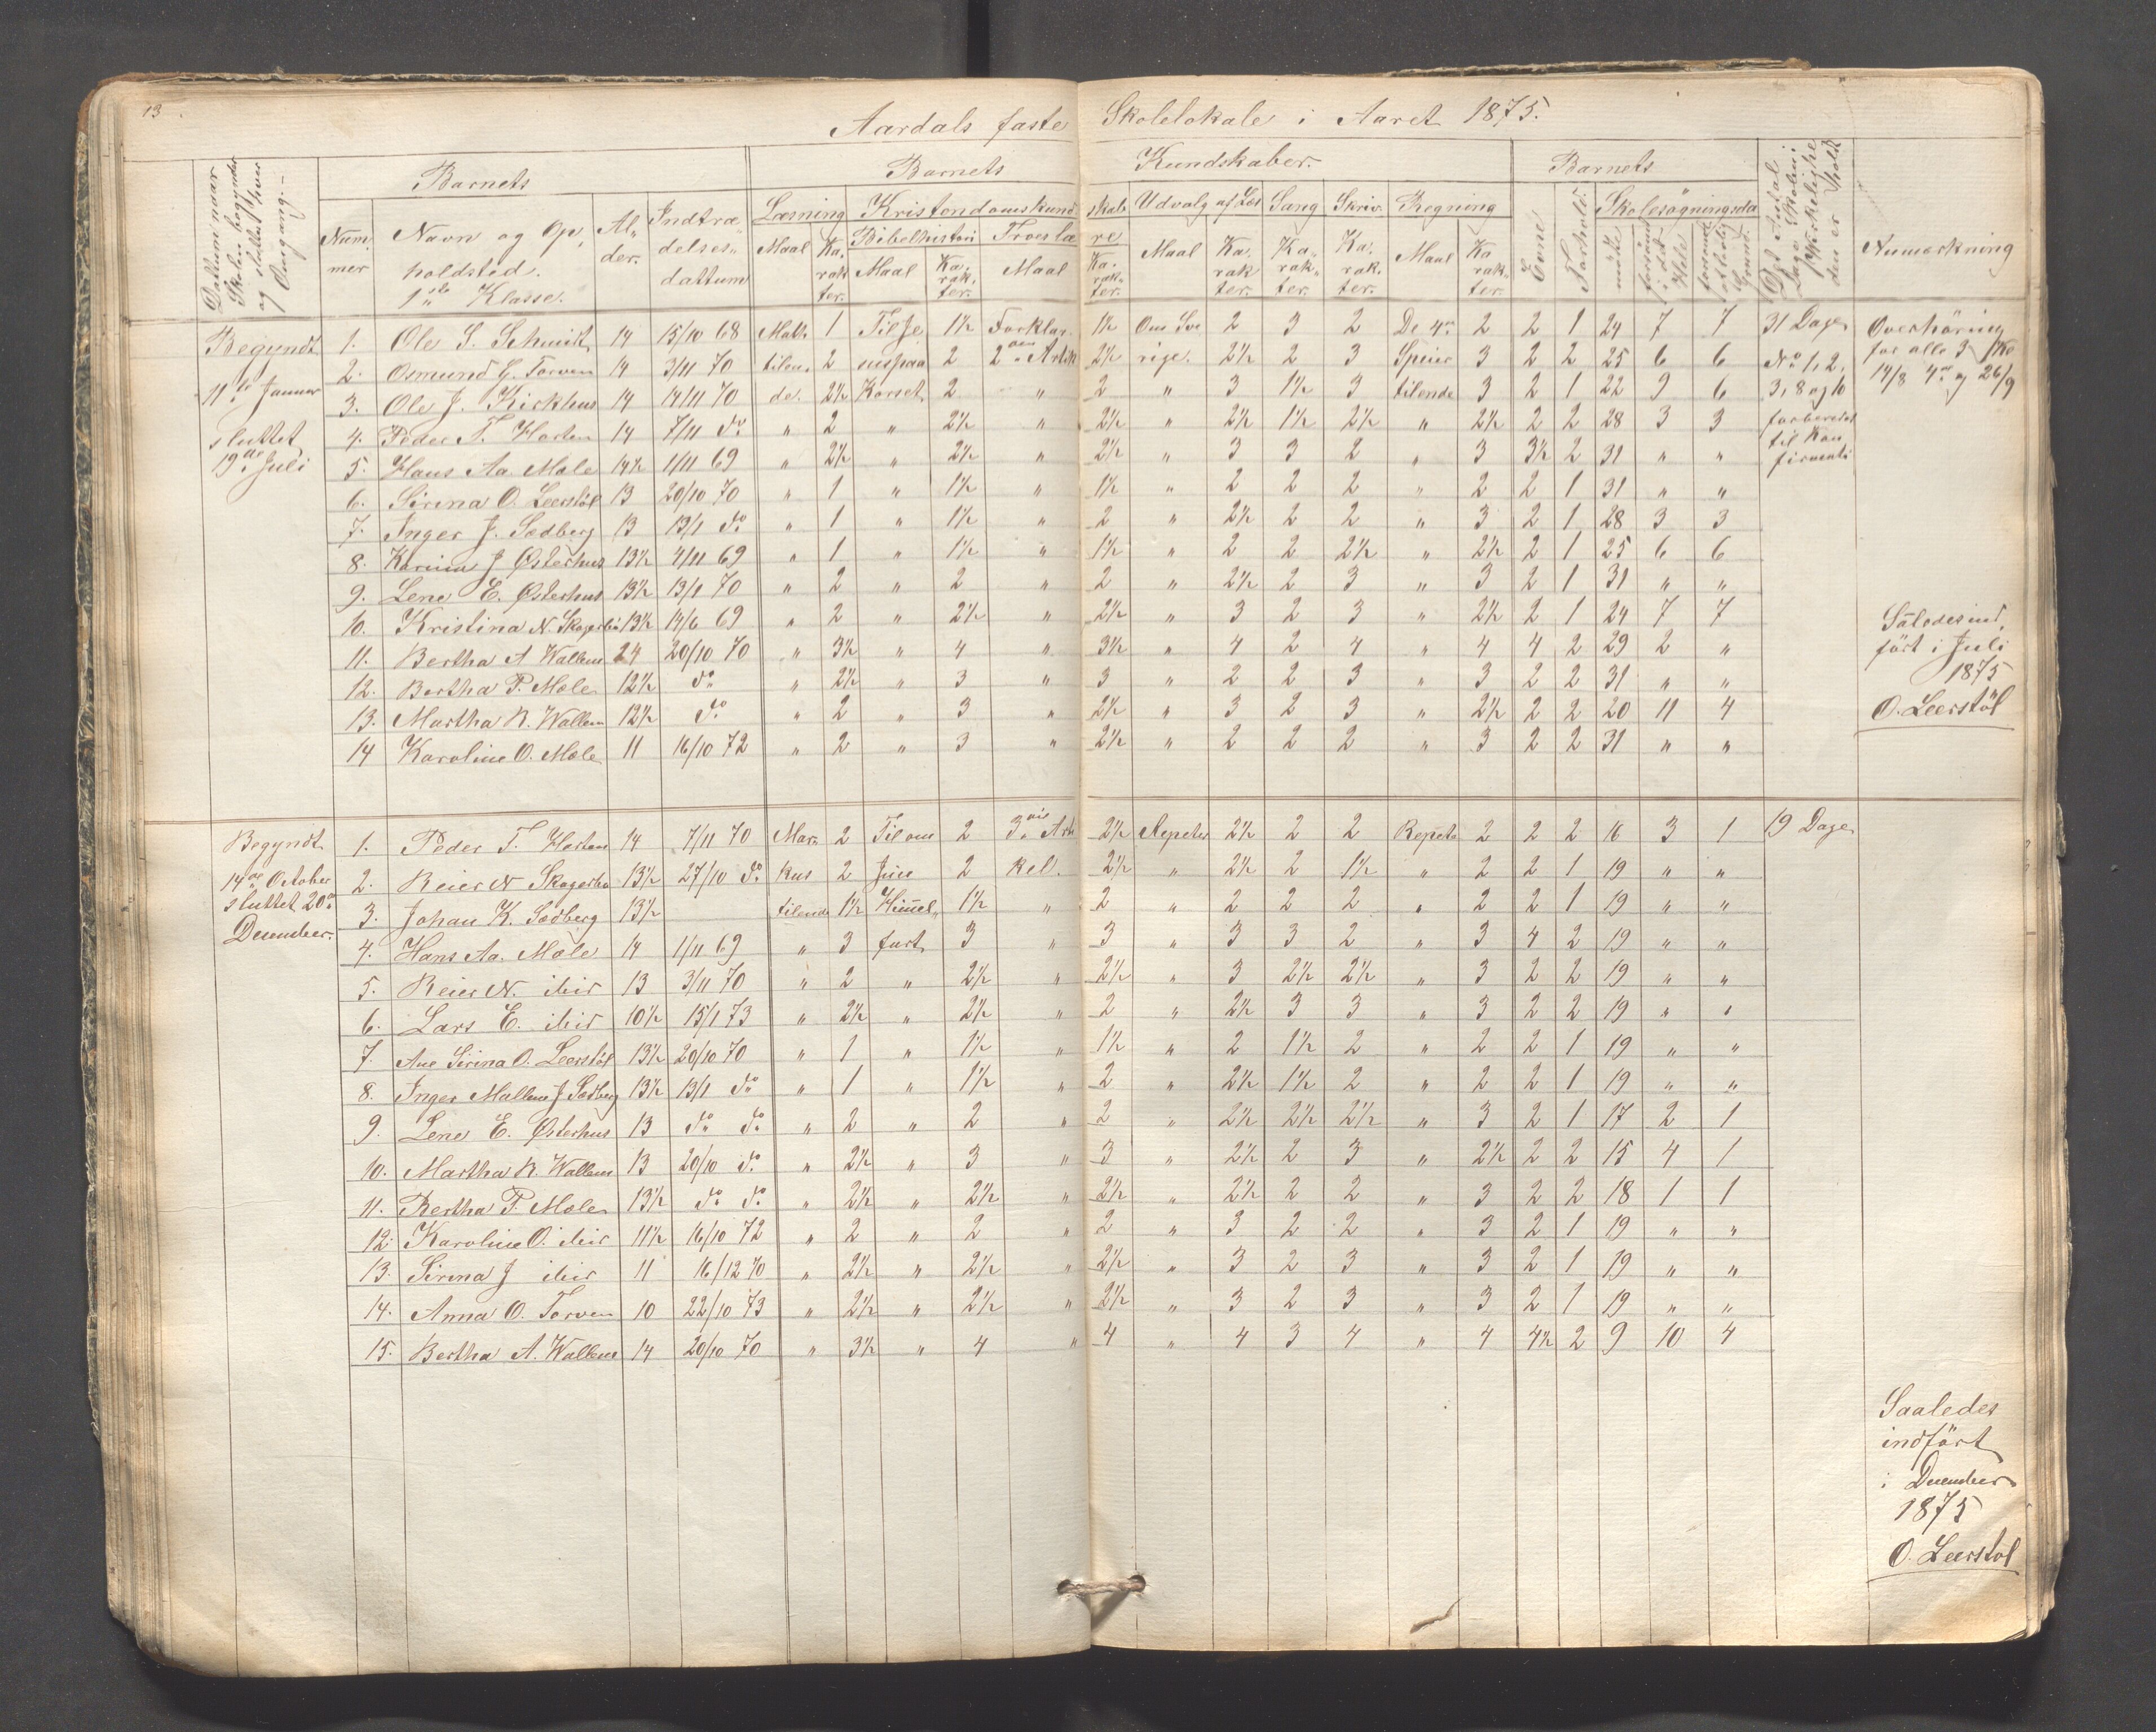 13
Aardals faste Skolelokale i Aaret 1875.
Dattum naar Skolen begynder og sluttet hver Omgang.
Barnets
Barnets Kundskaber.
Barnets
Det Antal Dage Skolen i Virkelighe den er holdt
Anmærkning
Num mer
Navn og Op, holdsted. 1ste Klasse.
Al- der.
Indtræ delses dattum
Læsning
Kristendomskund skab
Udvalg af Læs
Sang
Skriv.
Regning
Evne
Forhold.
Skolesøgningsda
Bibelhistori
Troeslæ re
Maal Ka, rak ter. Maal Ka, rak, ter. Maal Ka, rak ter. Maal Ka, rak ter. Ka, rak ter. Ka, rak, ter. Maal Ka rak ter.
mødte
forsømt i det Hele
forsømt af lovlig Grund.
Begyndt
11te Januar
sluttet
19de Juli
1. Ole S. Schmidt 14 15/10 68 Math. 1 Til Je 1½ Forklar. 1½ Om Sve 2 3 2 De 4re 2 2 1 24 7 7 31 Dage
2. Osmund G. Torven 14 3/11 70 tilen, 2 sus paa 2 2den Artik 2½ rige. 2½ 2 3 Speier 3 2 2 25 6 6
3. Ole J. Kirkhus 14 14/11 70 de. 2½ Korset 2 " 2 " 3 1½ 3 tilende 3 2 1 22 9 6
4. Peder T. Horten 14 7/11 do " 2 " 2½ " 2½ " 2½ 1½ 2½ " 2½ 2 2 28 3 3
5. Hans Aa. Mæle 14½ 1/11 69 " 2½ " 2½ " 2½ " 3 3 2 " 3 3½ 2 31 " "
6. Sirena O. Leerstøl 13 20/10 70 " 1 " 1½ " 1½ " 2 2 2 " 2 2 1 31 " "
7. Inger J. Sedberg 13 13/1 do " 1 " 1½ " 2 " 2½ 2 2 " 3 2 1 28 3 3
8. Karina J Østerhus 13½ 4/11 69 " 1 " 1½ " 1½ " 2 2 2½ " 2½ 2 1 25 6 6
9. Lene E. Østerhus 13½ 13/1 70 " 2 " 2 " 2 " 2½ 2 3 " 3 2 1 31 " "
10. Kristina N. Skogerbø 13½ 14/6 69 " 2 " 2½ " 2½ " 3 2 3 " 2½ 2 1 24 7 7
11. Bertha A Wallem 14 20/10 70 " 3½ " 4 " 3½ " 4 2 4 " 4 4 2 29 2 "
12. Bertha P. Mæle 12½ do " 2½ " 3 " 3 " 2 2 3 " 3 2 2 31 " "
13. Martha R. Wallem 12½ do " 2 " 3 " 2½ " 3 2 3 " 2½ 2 2 20 11 4
14 Karoline O. Mæle 11 16/10 72 " 2 " 3 " 2½ " 2 2 2 " 3 2 2 31 " "
No 1, 2,
3, 8 og 10
forberedet
til Kon
firmati
Overhøring
for alle 3
14/8 4de og 26/9
Saaledes ind,
ført i Juli
1875
O. Leerstøl
Begyndt
14de October
sluttet 20de
December.
1. Peder T. Horten 14 7/11 70 Mar- 2 Til om 2 3die Art 2½ Repeter 2½ 2 2 Repete 2 2 2 16 3 1 19 Dage
2. Reier N Skogerbø 13½ 27/10 do kus 2 Jesu 2 kel. 2½ " 2½ 2 1½ " 2 2 1 19 " "
3. Johan K. Sedberg 13½ tilende 1½ Himmel- 1½ " 2 " 2 2 2 " 2 2 1 19 " "
4. Hans Aa. Mæle 14 1/11 69 " 3 fart 3 " 3 " 3 3 2 " 3 4 2 19 " "
5. Reier N. ibid 13 3/11 70 " 2 " 2½ " 2½ " 3 2½ 2½ " 3 2 2 19 " "
6. Lars E. ibid 10½ 15/1 73 " 2½ " 2½ " 2 " 2½ 3 3 " 3 2 2 19 " "
7. Ane Sirina O. Leerstøl 13½ 20/10 70 " 1 " 1½ " 1½ " 2 1½ 2 " 2 2 1 19 " "
8. Inger Mallene J Sedberg 13½ 13/1 do " 1 " 1½ " 2 " 2½ 1½ 2 " 2 2 1 19 " "
9. Lene E. Østerhus 13 do do " 2 " 2 " 2 " 2½ 2½ 2½ " 3 2 1 17 2 1
10. Martha R. Wallem 13 20/10 do " 2½ " 3 " 3 " 2½ 2 3 " 2½ 2 2 15 4 1
11. Bertha P. Mæle 13½ do do " 2½ " 2½ " 2½ " 2½ 2 2 " 3 2 2 18 1 1
12. Karoline O. ibid 11½ 16/10 72 " 2 " 2 " 2 " 3 2 2 " 3 2 1 19 " "
13. Sirina J ibid 11 16/12 70 " 2½ " 2½ " 2½ " 3 2 3 " 3 2 1 19 " "
14. Anna O. Torven 10 22/10 73 " 2½ " 2½ " 2½ " 3 2 3 " 3 2 1 19 " "
15. Bertha A. Wallem 14 20/10 70 " 3½ " 4 " 4 " 4 3 4 " 4 4½ 2 9 10 4
Saaledes
indført
i December
1875
O. Leerstøl